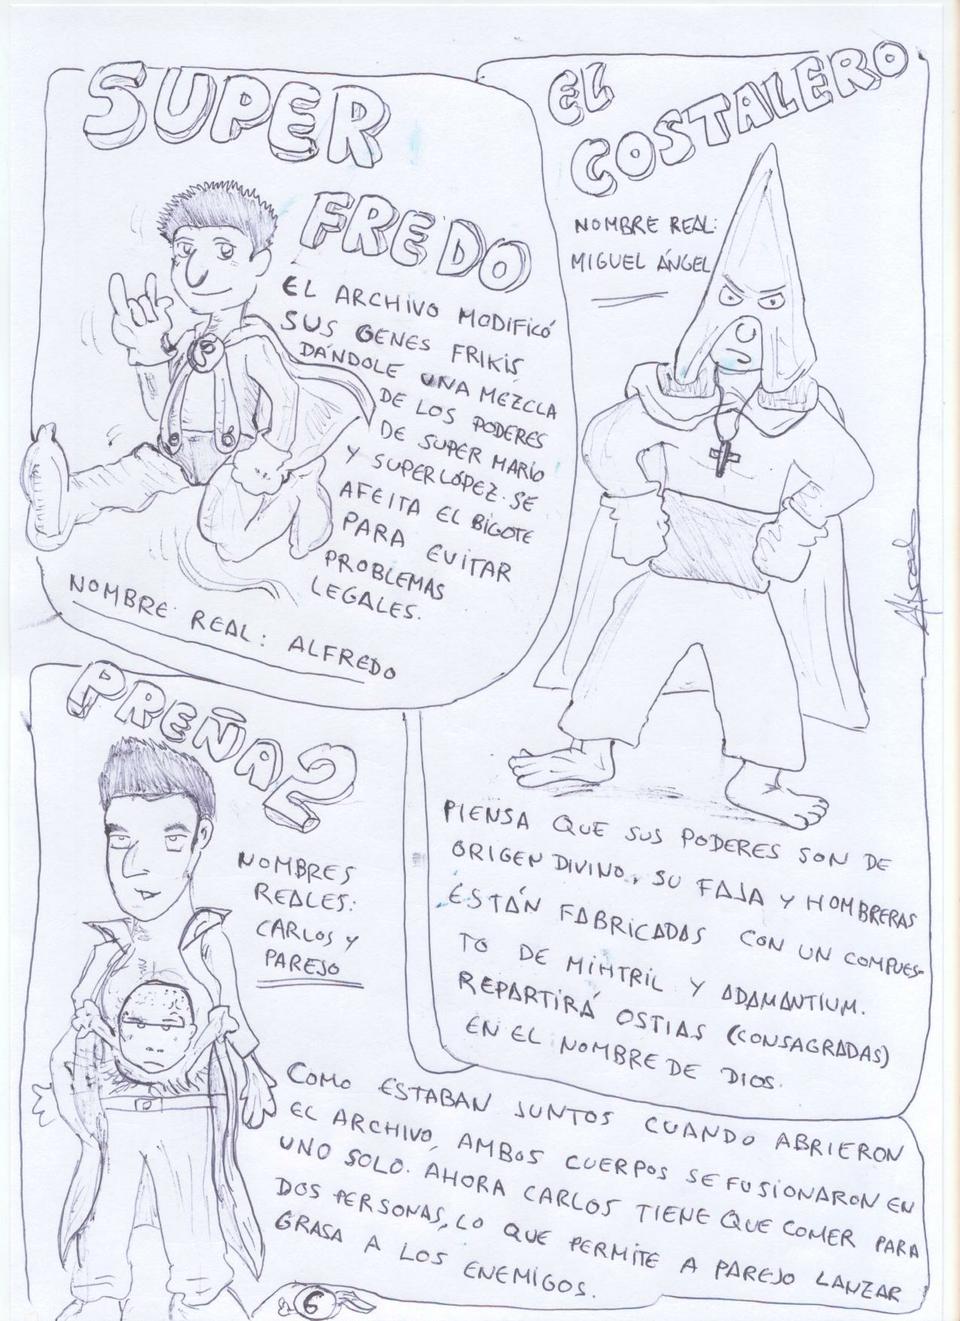 SUPER
FREDO
EL ARCHIVO MODIFICÓ
SUS GENES FRIKIS,
DÁNDOLE UNA MEZCLA
DE LOS PODERES
DE SUPER MARIO
Y SUPERLÓPEZ. SE
AFEITA EL BIGOTE
PARA EVITAR
PROBLEMAS
LEGALES.
NOMBRE REAL: ALFREDO
EL
COSTALERO
NOMBRE REAL:
MIGUEL ÁNGEL
PIENSA QUE SUS PODERES SON DE
ORIGEN DIVINO. SU FAJA Y HOMBRERAS
ESTÁN FABRICADAS CON UN COMPUES-
TO DE MIHTRIL Y ADAMANTIUM.
REPARTIRÁ OSTIAS (CONSAGRADAS)
EN EL NOMBRE DE DIOS.
PREÑA2
NOMBRES
REALES:
CARLOS Y
PAREJO
COMO ESTABAN JUNTOS CUANDO ABRIERON
EL ARCHIVO, AMBOS CUERPOS SE FUSIONARON EN
UNO SOLO. AHORA CARLOS TIENE QUE COMER PARA
DOS PERSONAS, LO QUE PERMITE A PAREJO LANZAR
GRASA A LOS ENEMIGOS.
6